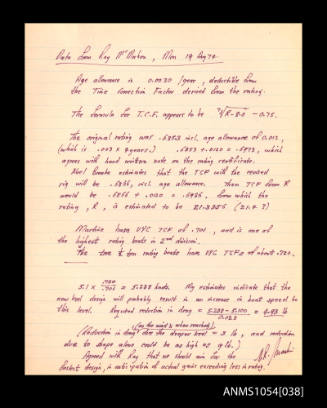 Data from Ray McMahon, Mon 19 Aug 74
Age allowance is 0.0030 /year, deductible from
the Time Correction Factor derived from the rating.
The formula for T.C.F. appears to be
The original rating was .6853 incl. age allowance of 0.012,
(which is .003 x 4 years.) .6853 + .0120 = .6973, which
agrees with hand written note on the rating certificate.
estimates that the TCF with the revised
rig will be .6836, incl. age allowance. Then TCF from R
would be .6836 + .0120 = .6956, from which the
rating, R, is estimated to be
has VYC TCF of .701, and is one of
the highest rating boats in 2nd division.
The ton boats have VYC TCFs of about .720.
5.1 x = 5.238 knots. My estimates indicate that the
new keel design will probably result in an increase in boat speed to
this level. Required reduction in drag =
(Reduction in drag for the deeper keel = 3 lb, and reduction
due to shape alone could be as high as 2 lb.)
Agreed with Ray that we should aim for the
fastest design, in anticipation of actual gains exceeding loss in rating.
ANMS1054[038]